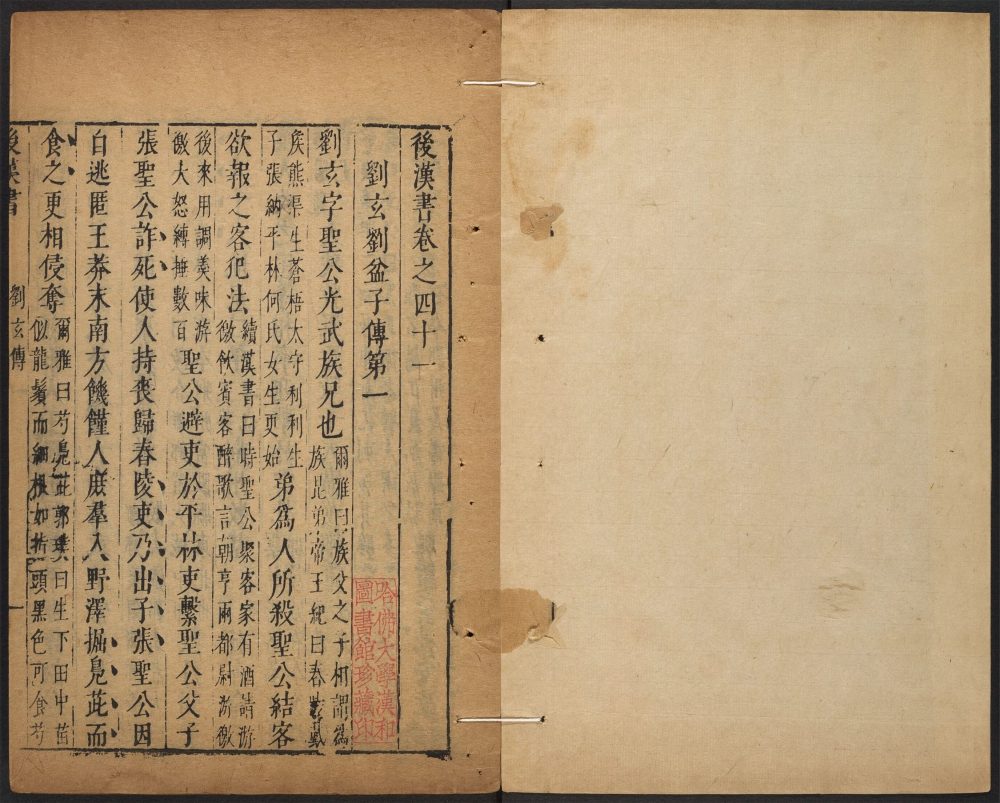 後漢書卷之四十一
劉玄劉盆子傳第一
劉玄字聖公光武族兄也
爾雅曰族父之子相謂為
族昆弟帝王紀曰春陵戴
侯熊渠生蒼梧太守利利生
子張納平林何氏女生更始
弟為人所殺聖公結客
欲報之客犯法
續漢書曰時聖公聚客家有酒請游
徼飲賓客醉歌言朝亨兩都尉游徼
後來用調羹味游
徼大怒縛捶數百
聖公避吏於平林吏繫聖公父子
張聖公詐死使人持喪歸舂陵吏乃出子張聖公因
自逃匿王莽末南方饑饉人庶羣入野澤掘鳧茈而
食之更相侵奪
爾雅曰芍鳧茈郭璞曰生下田中苗
似龍鬚而細根如指頭黑色可食芍
後漢書
劉玄傳
一
哈佛大學漢和
圖書館珍藏印